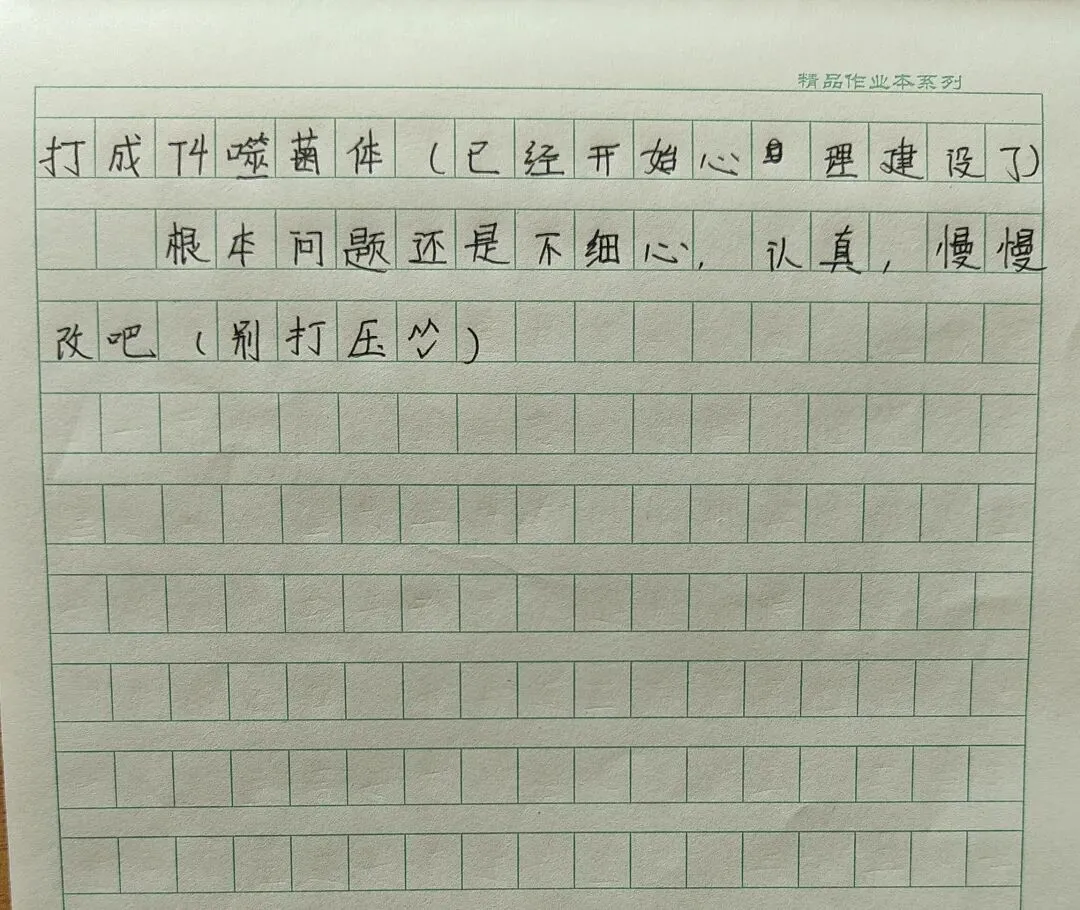 精品作业本系列
打成T4噬菌体(已经开始心理建设了)
根本问题还是不细心,认真,慢慢
改吧(别打压^^)